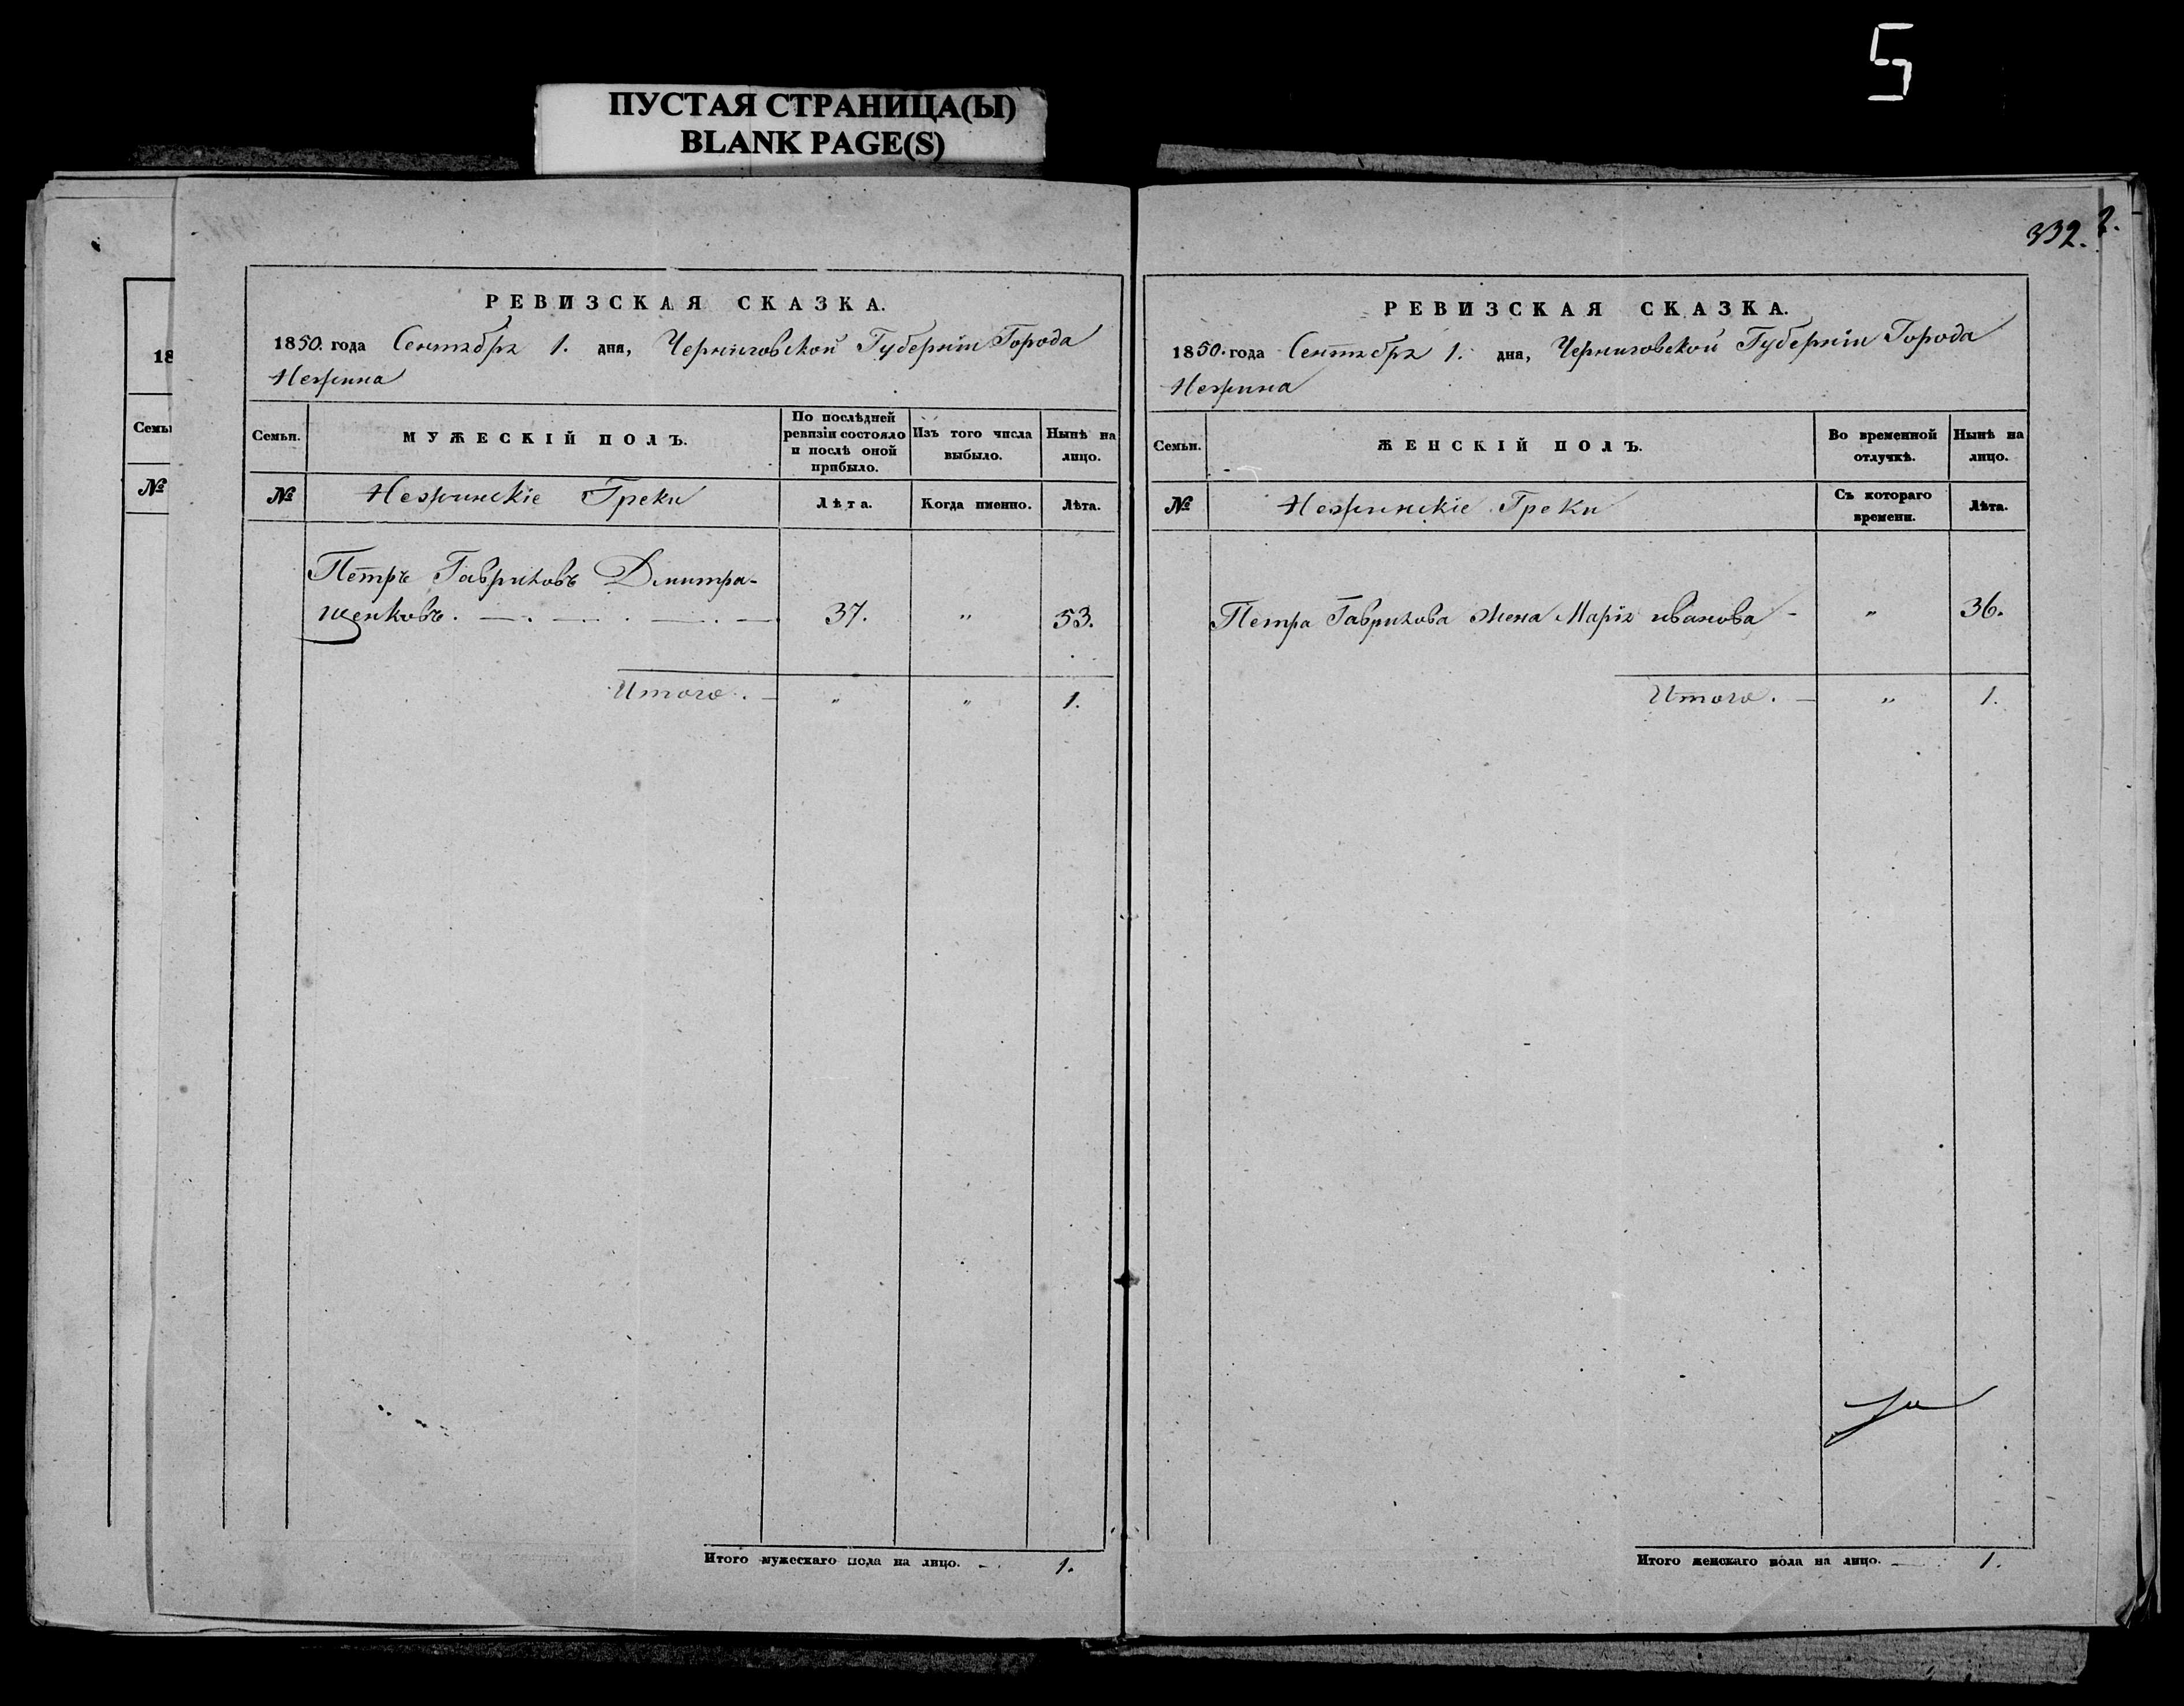 5
ПУСТАЯ СТРАНИЦА(Ы)
BLANK PAGE(S)
18
Семьи
№
РЕВИЗСКАЯ СКАЗКА.
1850. года Сентября 1. дня, Черниговской Губерніи Города
Нежина
Семьи.
МУЖЕСКІЙ ПОЛЪ.
По послѣдней
ревизіи состояло
и послѣ оной
прибыло.
Изъ того числа
выбыло.
Нынѣ на
лицо.
№
Нежинскіе Греки
Лѣта.
Когда именно.
Лѣта.
Петръ Гавриловъ Дмитра-
щенковъ. — . — . — . — 37. " 53.
Итого. — " " 1.
Итого мужескаго пола на лицо. — 1.
332. 2.
РЕВИЗСКАЯ СКАЗКА.
1850. года Сентября 1. дня, Черниговской Губерніи Города
Нежина
Семьи.
ЖЕНСКІЙ ПОЛЪ.
Во временной
отлучкѣ.
Нынѣ на
лицо.
№
Нежинскіе Греки
Съ котораго
времени.
Лѣта.
Петра Гаврилова жена Марія иванова - " 36.
Итого. — " 1.
Итого женскаго пола на лицо. — 1.